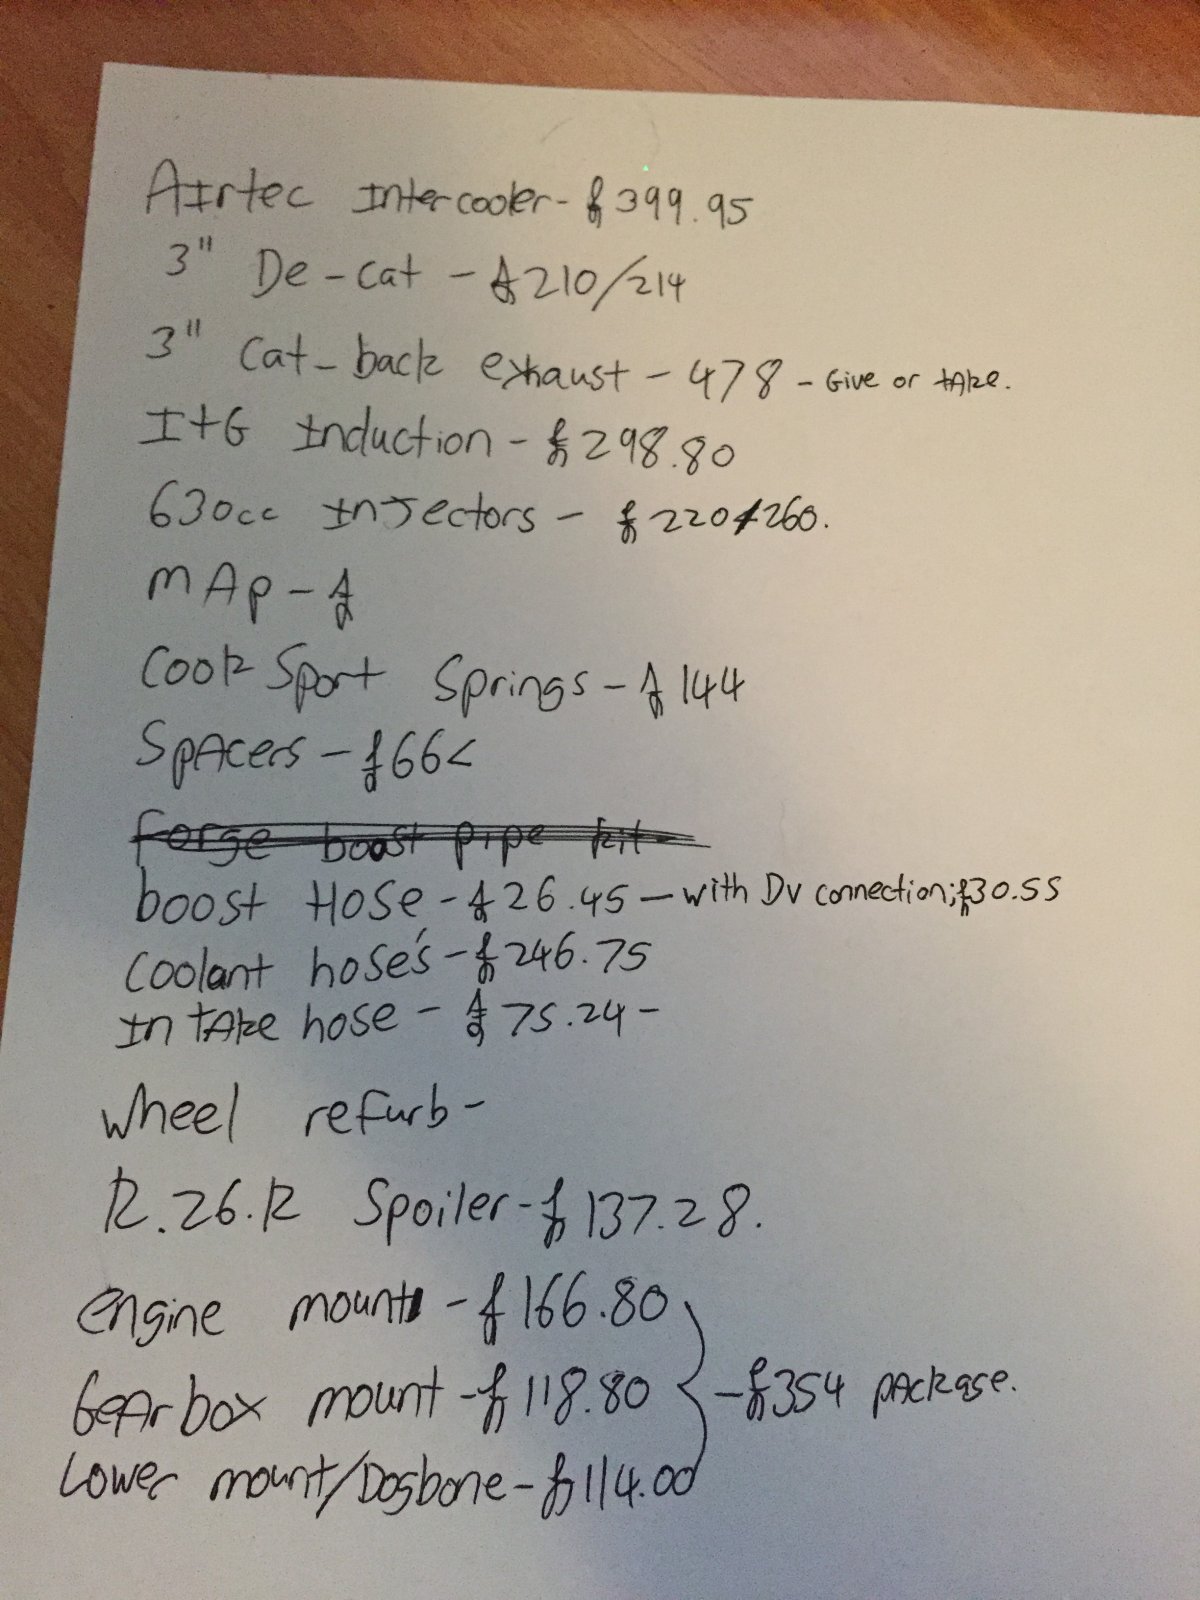 AIrtec Intercooler - £399.95
3" De-cat - £210/214
3" Cat-back exhaust - 478 - Give or tAke.
ItG Induction - £298.80
630cc InJectors - £220/260.
mAp - £
Cook Sport Springs - £144
SpAcers - £66<
Forge boost pipe kit
boost Hose - £26.45 - with Dv connection; £30.55
Coolant hose's - £246.75
In tAke hose - £75.24 -
wheel refurb -
R.26.R Spoiler - £137.28.
engine mount - £166.80
GeAr box mount - £118.80 - £354 pAckage.
Lower mount/Dogbone - £114.00